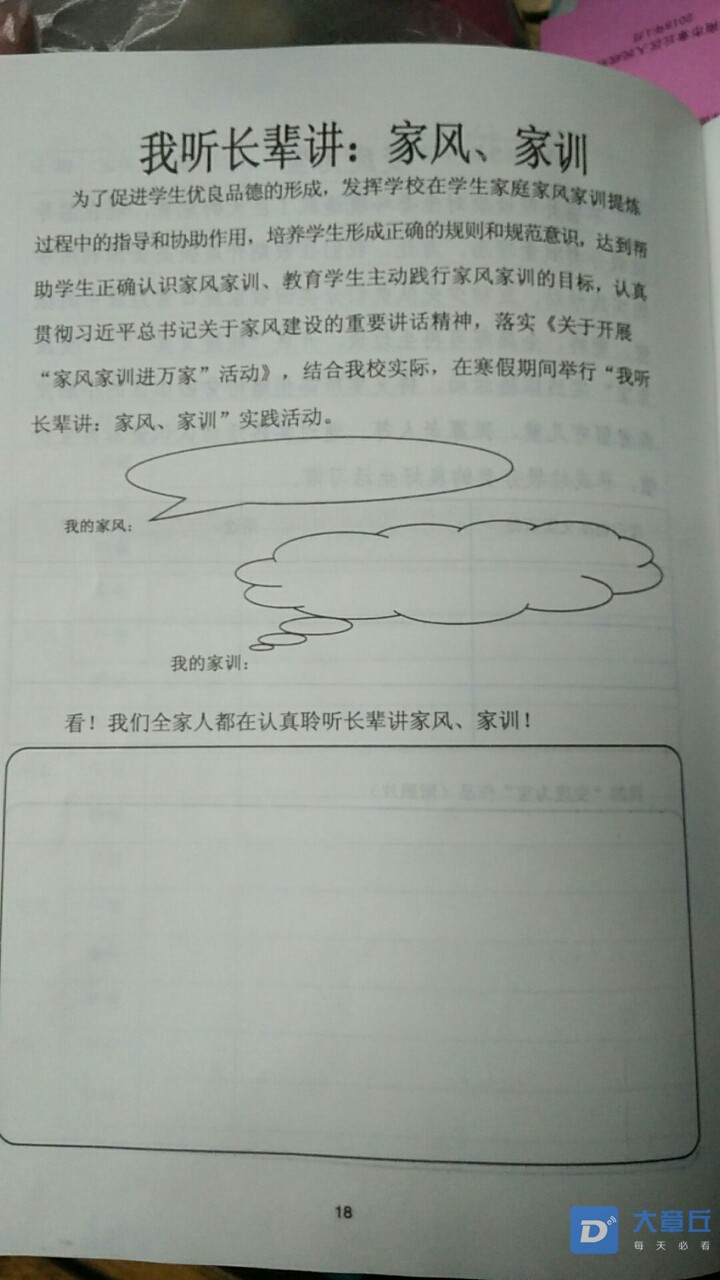 我听长辈讲：家风、家训
为了促进学生优良品德的形成，发挥学校在学生家庭家风家训提炼
过程中的指导和协助作用，培养学生形成正确的规则和规范意识，达到帮
助学生正确认识家风家训、教育学生主动践行家风家训的目标，认真
贯彻习近平总书记关于家风建设的重要讲话精神，落实《关于开展
“家风家训进万家”活动》，结合我校实际，在寒假期间举行“我听
长辈讲：家风、家训”实践活动。
我的家风：
我的家训：
看！我们全家人都在认真聆听长辈讲家风、家训！
18
大章丘
每天必看